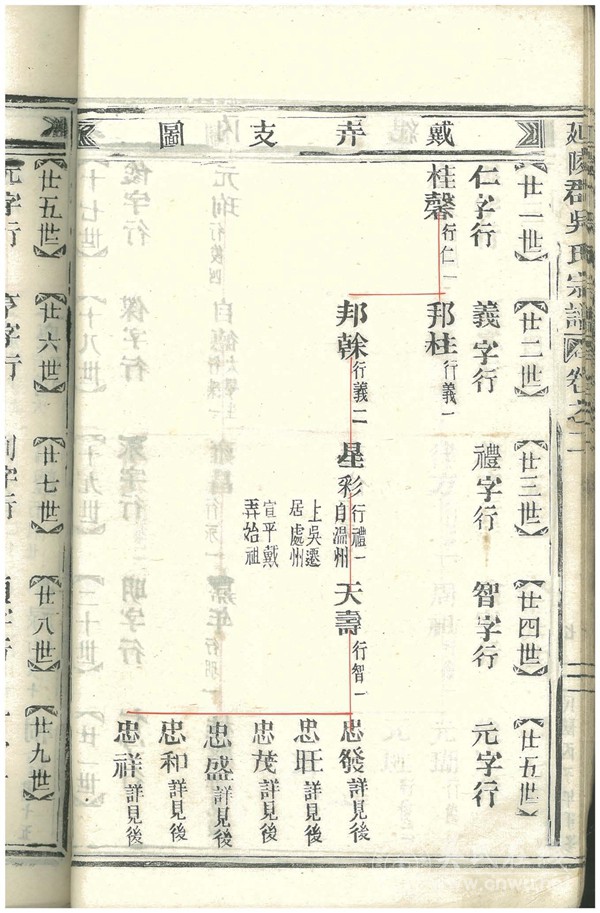 延陵群吳氏宗譜 卷之二
戴弄支圖
【廿一世】
【廿二世】
【廿三世】
【廿四世】
【廿五世】
仁字行
義字行
禮字行
智字行
元字行
桂馨 行仁一
邦柱 行義一
邦榦 行義二
星彩 行禮一
自溫州
上吳遷
居處州
宣平戴
弄始祖
天壽 行智一
忠發 詳見後
忠旺 詳見後
忠茂 詳見後
忠盛 詳見後
忠和 詳見後
忠祥 詳見後
【廿五世】
【廿六世】
【廿七世】
【廿八世】
【廿九世】
元字行
亨字行
利字行